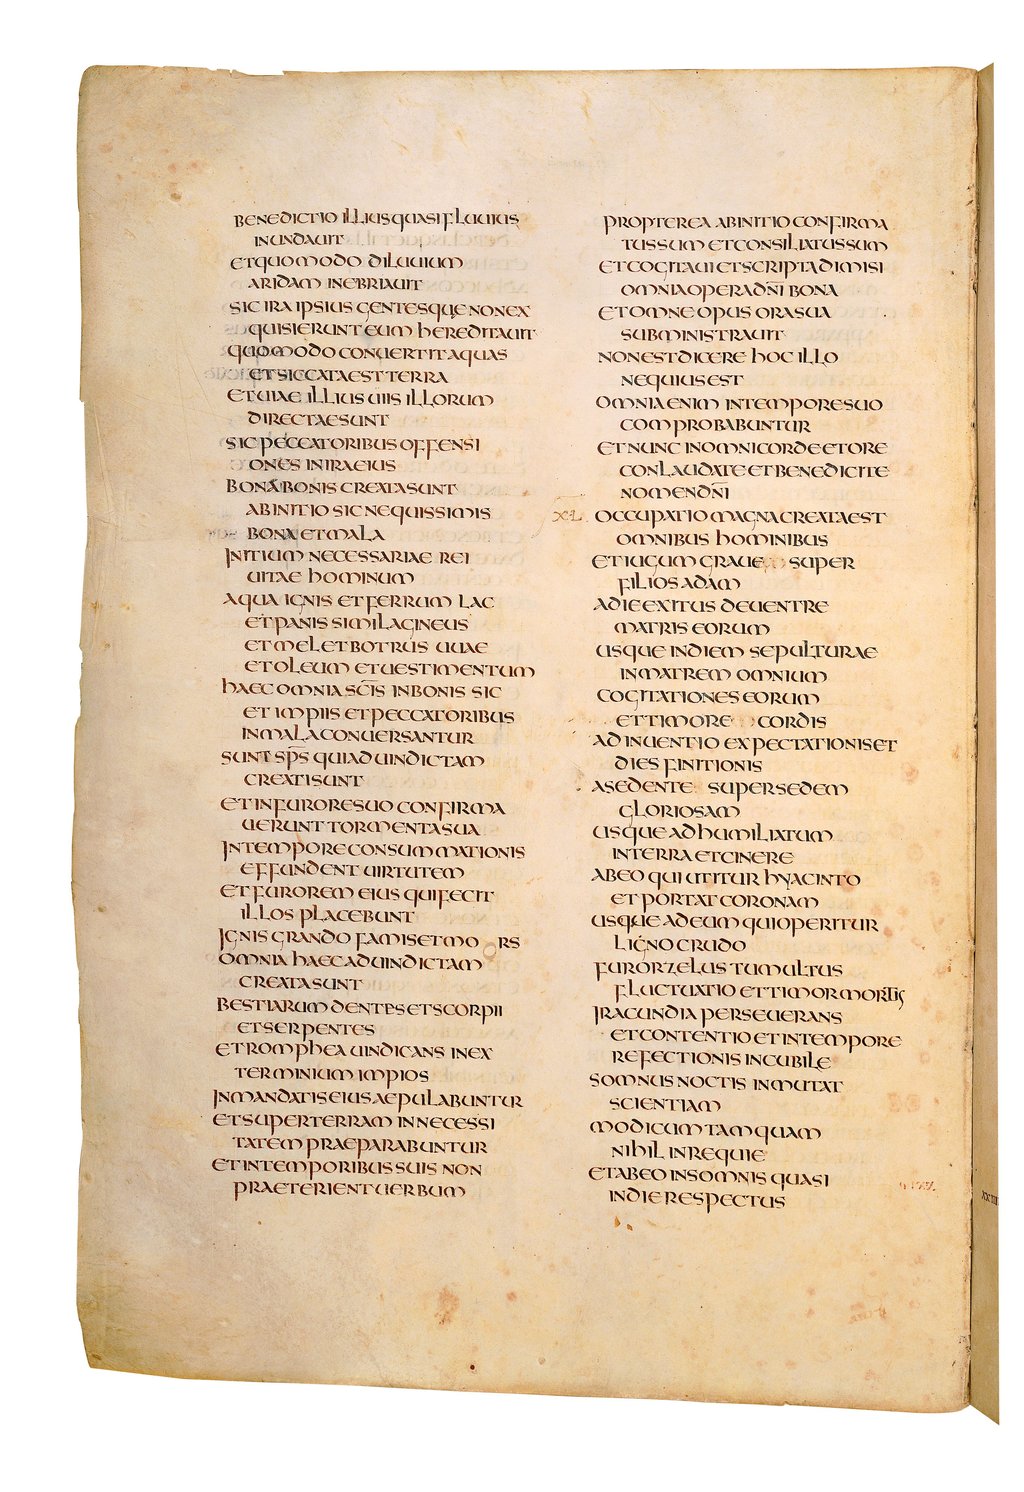 BENEDICTIO ILLIUS QUASI FLUUIUS
INUNDAUIT
ET QUOMODO DILUUIUM
ARIDAM INEBRIAUIT
SIC IRA IPSIUS GENTES QUE NON EX
QUISIERUNT EUM HEREDITAUIT
QUOMODO CONUERTIT AQUAS
ET SICCATA EST TERRA
ET UIAE ILLIUS UIIS ILLORUM
DIRECTAE SUNT
SIC PECCATORIBUS OFFENSI
ONES IN IRA EIUS
BONA BONIS CREATA SUNT
AB INITIO SIC NEQUISSIMIS
BONA ET MALA
INITIUM NECESSARIAE REI
UITAE HOMINUM
AQUA IGNIS ET FERRUM LAC
ET PANIS SIMILAGINEUS
ET MEL ET BOTRUS UUAE
ET OLEUM ET UESTIMENTUM
HAEC OMNIA SC̅IS IN BONIS SIC
ET IMPIIS ET PECCATORIBUS
IN MALA CONUERSANTUR
SUNT SP̅S QUI AD UINDICTAM
CREATI SUNT
ET IN FURORE SUO CONFIRMA
UERUNT TORMENTA SUA
IN TEMPORE CONSUMMATIONIS
EFFUNDENT UIRTUTEM
ET FUROREM EIUS QUI FECIT
ILLOS PLACEBUNT
IGNIS GRANDO FAMIS ET MO RS
OMNIA HAEC AD UINDICTAM
CREATA SUNT
BESTIARUM DENTES ET SCORPII
ET SERPENTES
ET ROMPHEA UINDICANS IN EX
TERMINIUM IMPIOS
IN MANDATIS EIUS AEPULABUNTUR
ET SUPER TERRAM IN NECESSI
TATEM PRAEPARABUNTUR
ET IN TEMPORIBUS SUIS NON
PRAETERIENT UERBUM
PROPTEREA AB INITIO CONFIRMA
TUS SUM ET CONSILIATUS SUM
ET COGITAUI ET SCRIPTA DIMISI
OMNIA OPERA DN̅I BONA
ET OMNE OPUS ORA SUA
SUBMINISTRAUIT
NON EST DICERE HOC ILLO
NEQUIUS EST
OMNIA ENIM IN TEMPORE SUO
COMPROBABUNTUR
ET NUNC IN OMNI CORDE ET ORE
CONLAUDATE ET BENEDICITE
NOMEN DN̅I
XL OCCUPATIO MAGNA CREATA EST
OMNIBUS HOMINIBUS
ET IUGUM GRAUE SUPER
FILIOS ADAM
A DIE EXITUS DE UENTRE
MATRIS EORUM
USQUE IN DIEM SEPULTURAE
IN MATREM OMNIUM
COGITATIONES EORUM
ET TIMORE CORDIS
ADINUENTIO EXPECTATIONIS ET
DIES FINITIONIS
A SEDENTE SUPER SEDEM
GLORIOSAM
USQUE AD HUMILIATUM
IN TERRA ET CINERE
AB EO QUI UTITUR HYACINTO
ET PORTAT CORONAM
USQUE AD EUM QUI OPERITUR
LIGNO CRUDO
FUROR ZELUS TUMULTUS
FLUCTUATIO ET TIMOR MORTIS
IRACUNDIA PERSEUERANS
ET CONTENTIO ET IN TEMPORE
REFECTIONIS IN CUBILE
SOMNUS NOCTIS INMUTAT
SCIENTIAM
MODICUM TAMQUAM
NIHIL IN REQUIE
ET AB EO IN SOMNIS QUASI
IN DIE RESPECTUS